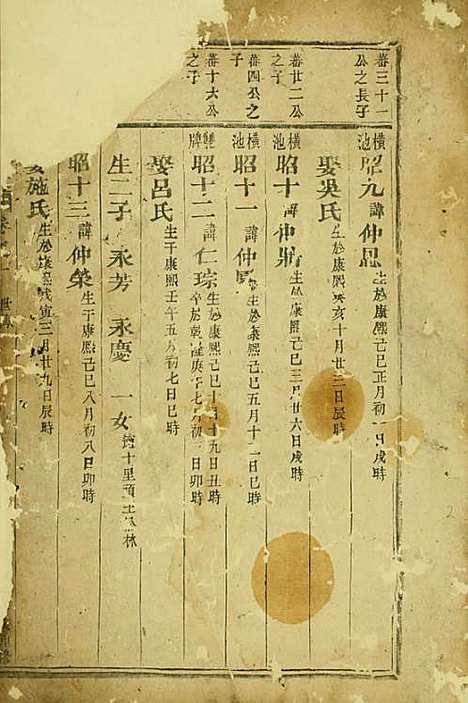 蕃三十一
公之長子
橫池
昭九 諱仲 生於康熙己巳正月初一日戌時
娶吳氏 生於康熙癸亥十月廿三日辰時
蕃廿二公
之子
昭十 諱仲 生於康熙己巳三月廿六日戌時
蕃四公之
子
橫池
昭十一 諱仲 生於康熙己巳五月十二日巳時
蕃十六公
之子
牌
昭十二 諱仁琮 生于康熙己巳十月十九日丑時 卒於乾隆庚午七月初二日卯時
娶呂氏 生于康熙壬午五月初七日巳時
生二子 永芳 永慶 一女 適十里 林
昭十三 諱仲榮 生于康熙己巳八月初八日卯時
娶施氏 生於康熙戊寅三月廿九日辰時